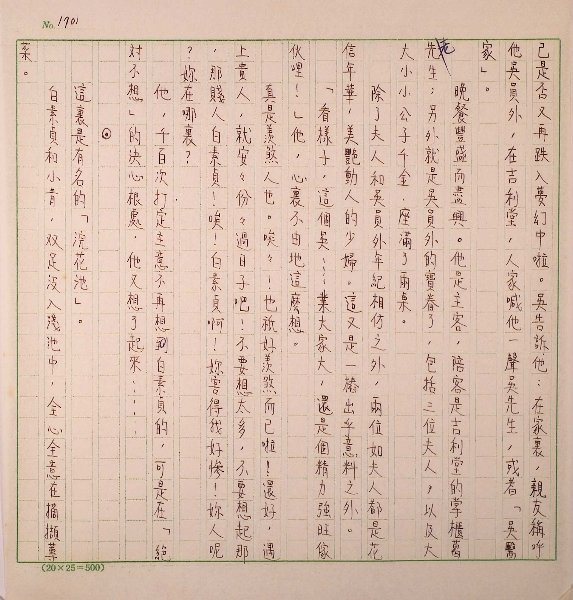 No. 1901
己是否又再跌入夢幻中啦。吳告訴他：在家裏，親友稱呼
他吳員外，在吉利堂，人家喊他一聲吳先生，或者「吳
家」。
晚餐豐盛而盡興。他是主客，陪客是吉利堂的掌櫃
先生；另外就是吳員外的寶眷了，包括三位夫人，以及大
大小小公子千金，座滿了兩桌。
除了夫人和吳員外年紀相仿之外，兩位如夫人都是花
信年華，美艷動人的少婦。這又是一樁出乎意料之外。
「看樣子，這個吳……業大家大，還是個精力強旺傢
伙哩！」他，心裏不由地這麼想。
真是羨煞人也。唉々！也祇好羨煞而已啦！還好，遇
上貴人，就安々份々過日子吧！不要想太多，不要想起那
，那賤人白素貞！唉！白素貞啊！妳害得我好慘！妳人呢
？妳在哪裏？
他，千百次打定主意不再想到白素貞的，可是在「絕
對不想」的決心根處，他又想了起來……
⊙
這裏是有名的「浣花池」。
白素貞和小青，双足沒入淺池中，全心全意在摘擷蓴
菜。
(20×25=500)